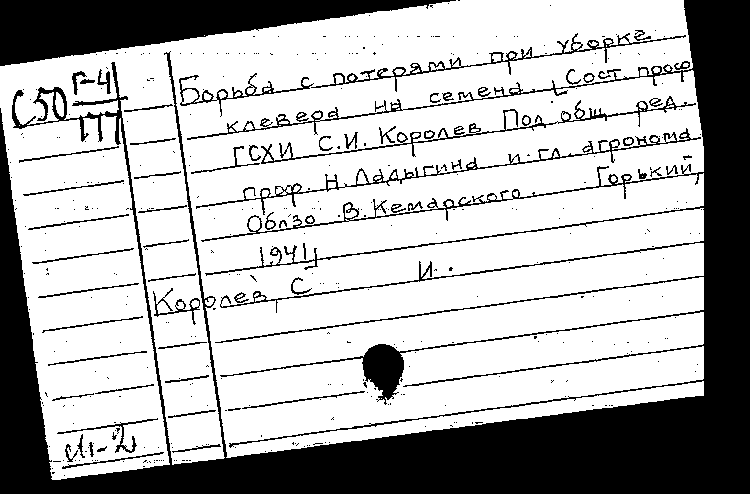 С50 Г-41
177
Борьба с потерями при уборке
клевера на семена. [Сост. проф.
ГСХИ С.И. Королев Под общ. ред.
проф. Н. Ладыгина и гл. агронома
Облзо В. Кемарского. Горький,
1941]
Королев, С И.